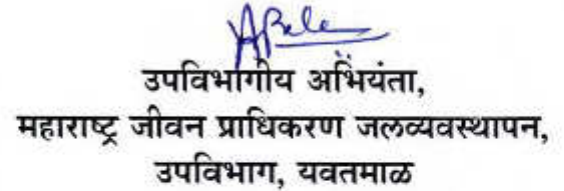 उपविभागीय अभियंता,
महाराष्ट्र जीवन प्राधिकरण जलव्यवस्थापन,
उपविभाग, यवतमाळ